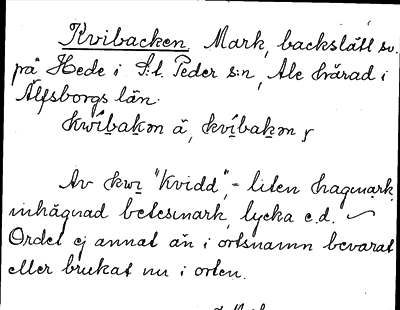 Kvibacken. Mark, backslätt sv.
på Hede i S:t. Peder s:n, Ale härad i
Älfsborgs län.
kwíbakən ä, kvíbakən
Av kwı "Kvidd",- liten hagmark,
inhägnad betesmark, lycka e.d.
Ordet ej annat än i ortsnamn bevarat
eller brukat nu i orten.